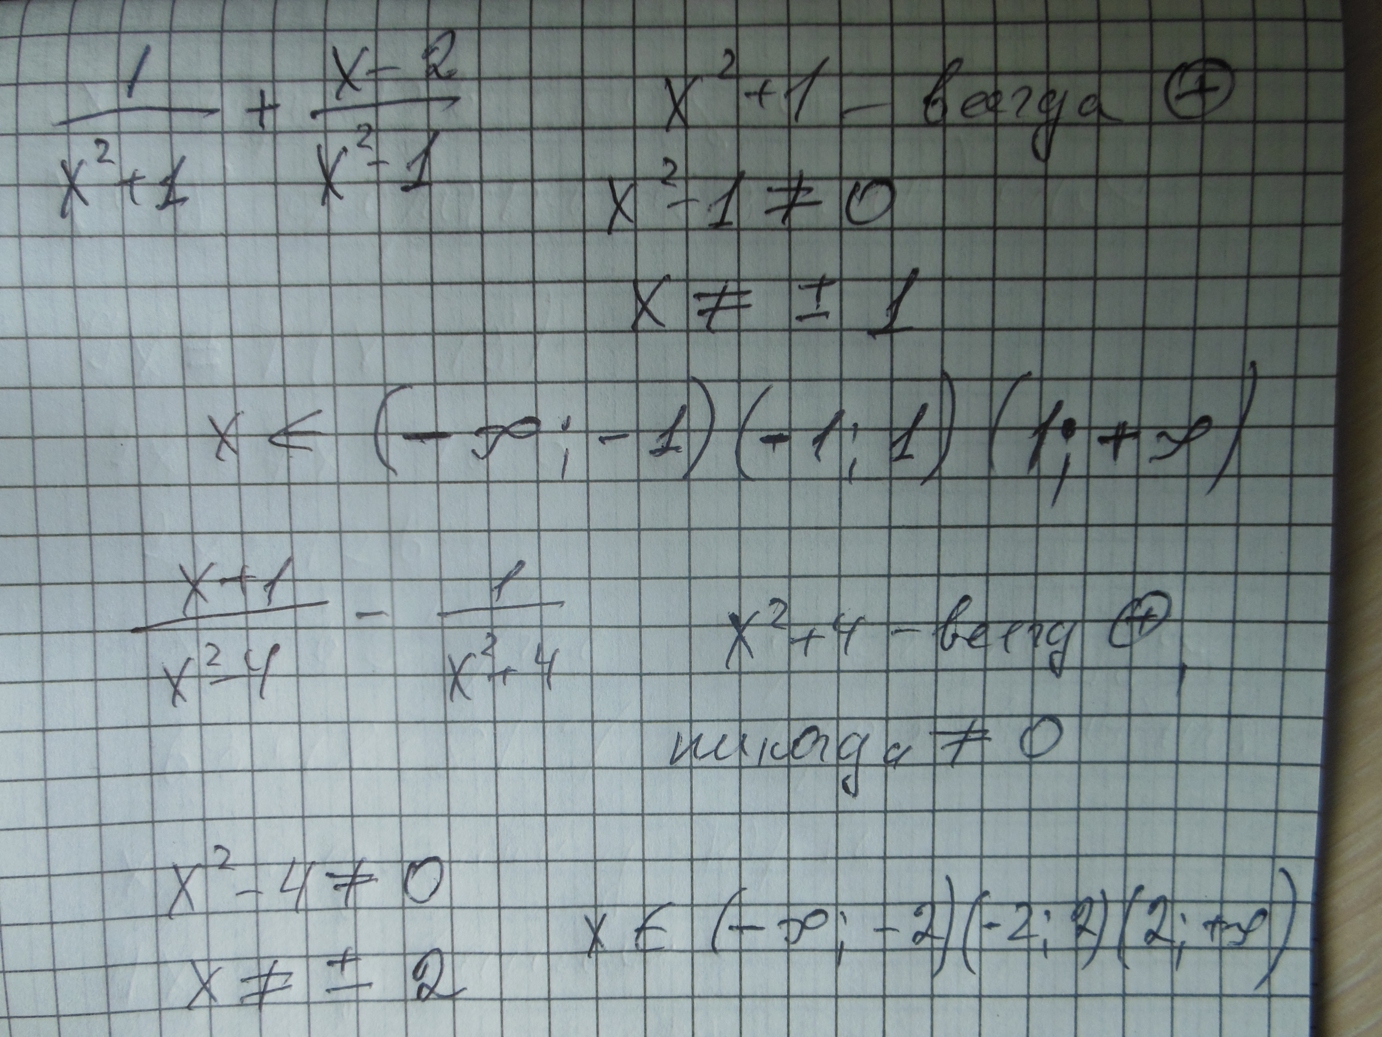 1/(x²+1) + (x-2)/(x²-1)
x²+1 – всегда ⊕
x²-1 ≠ 0
x ≠ ± 1
x ∈ (-∞; -1) (-1; 1) (1; +∞)
(x+1)/(x²-4) - 1/(x²+4)
x²+4 – всегд ⊕,
никогда ≠ 0
x²-4 ≠ 0
x ≠ ± 2
x ∈ (-∞; -2)(-2; 2)(2; +∞)